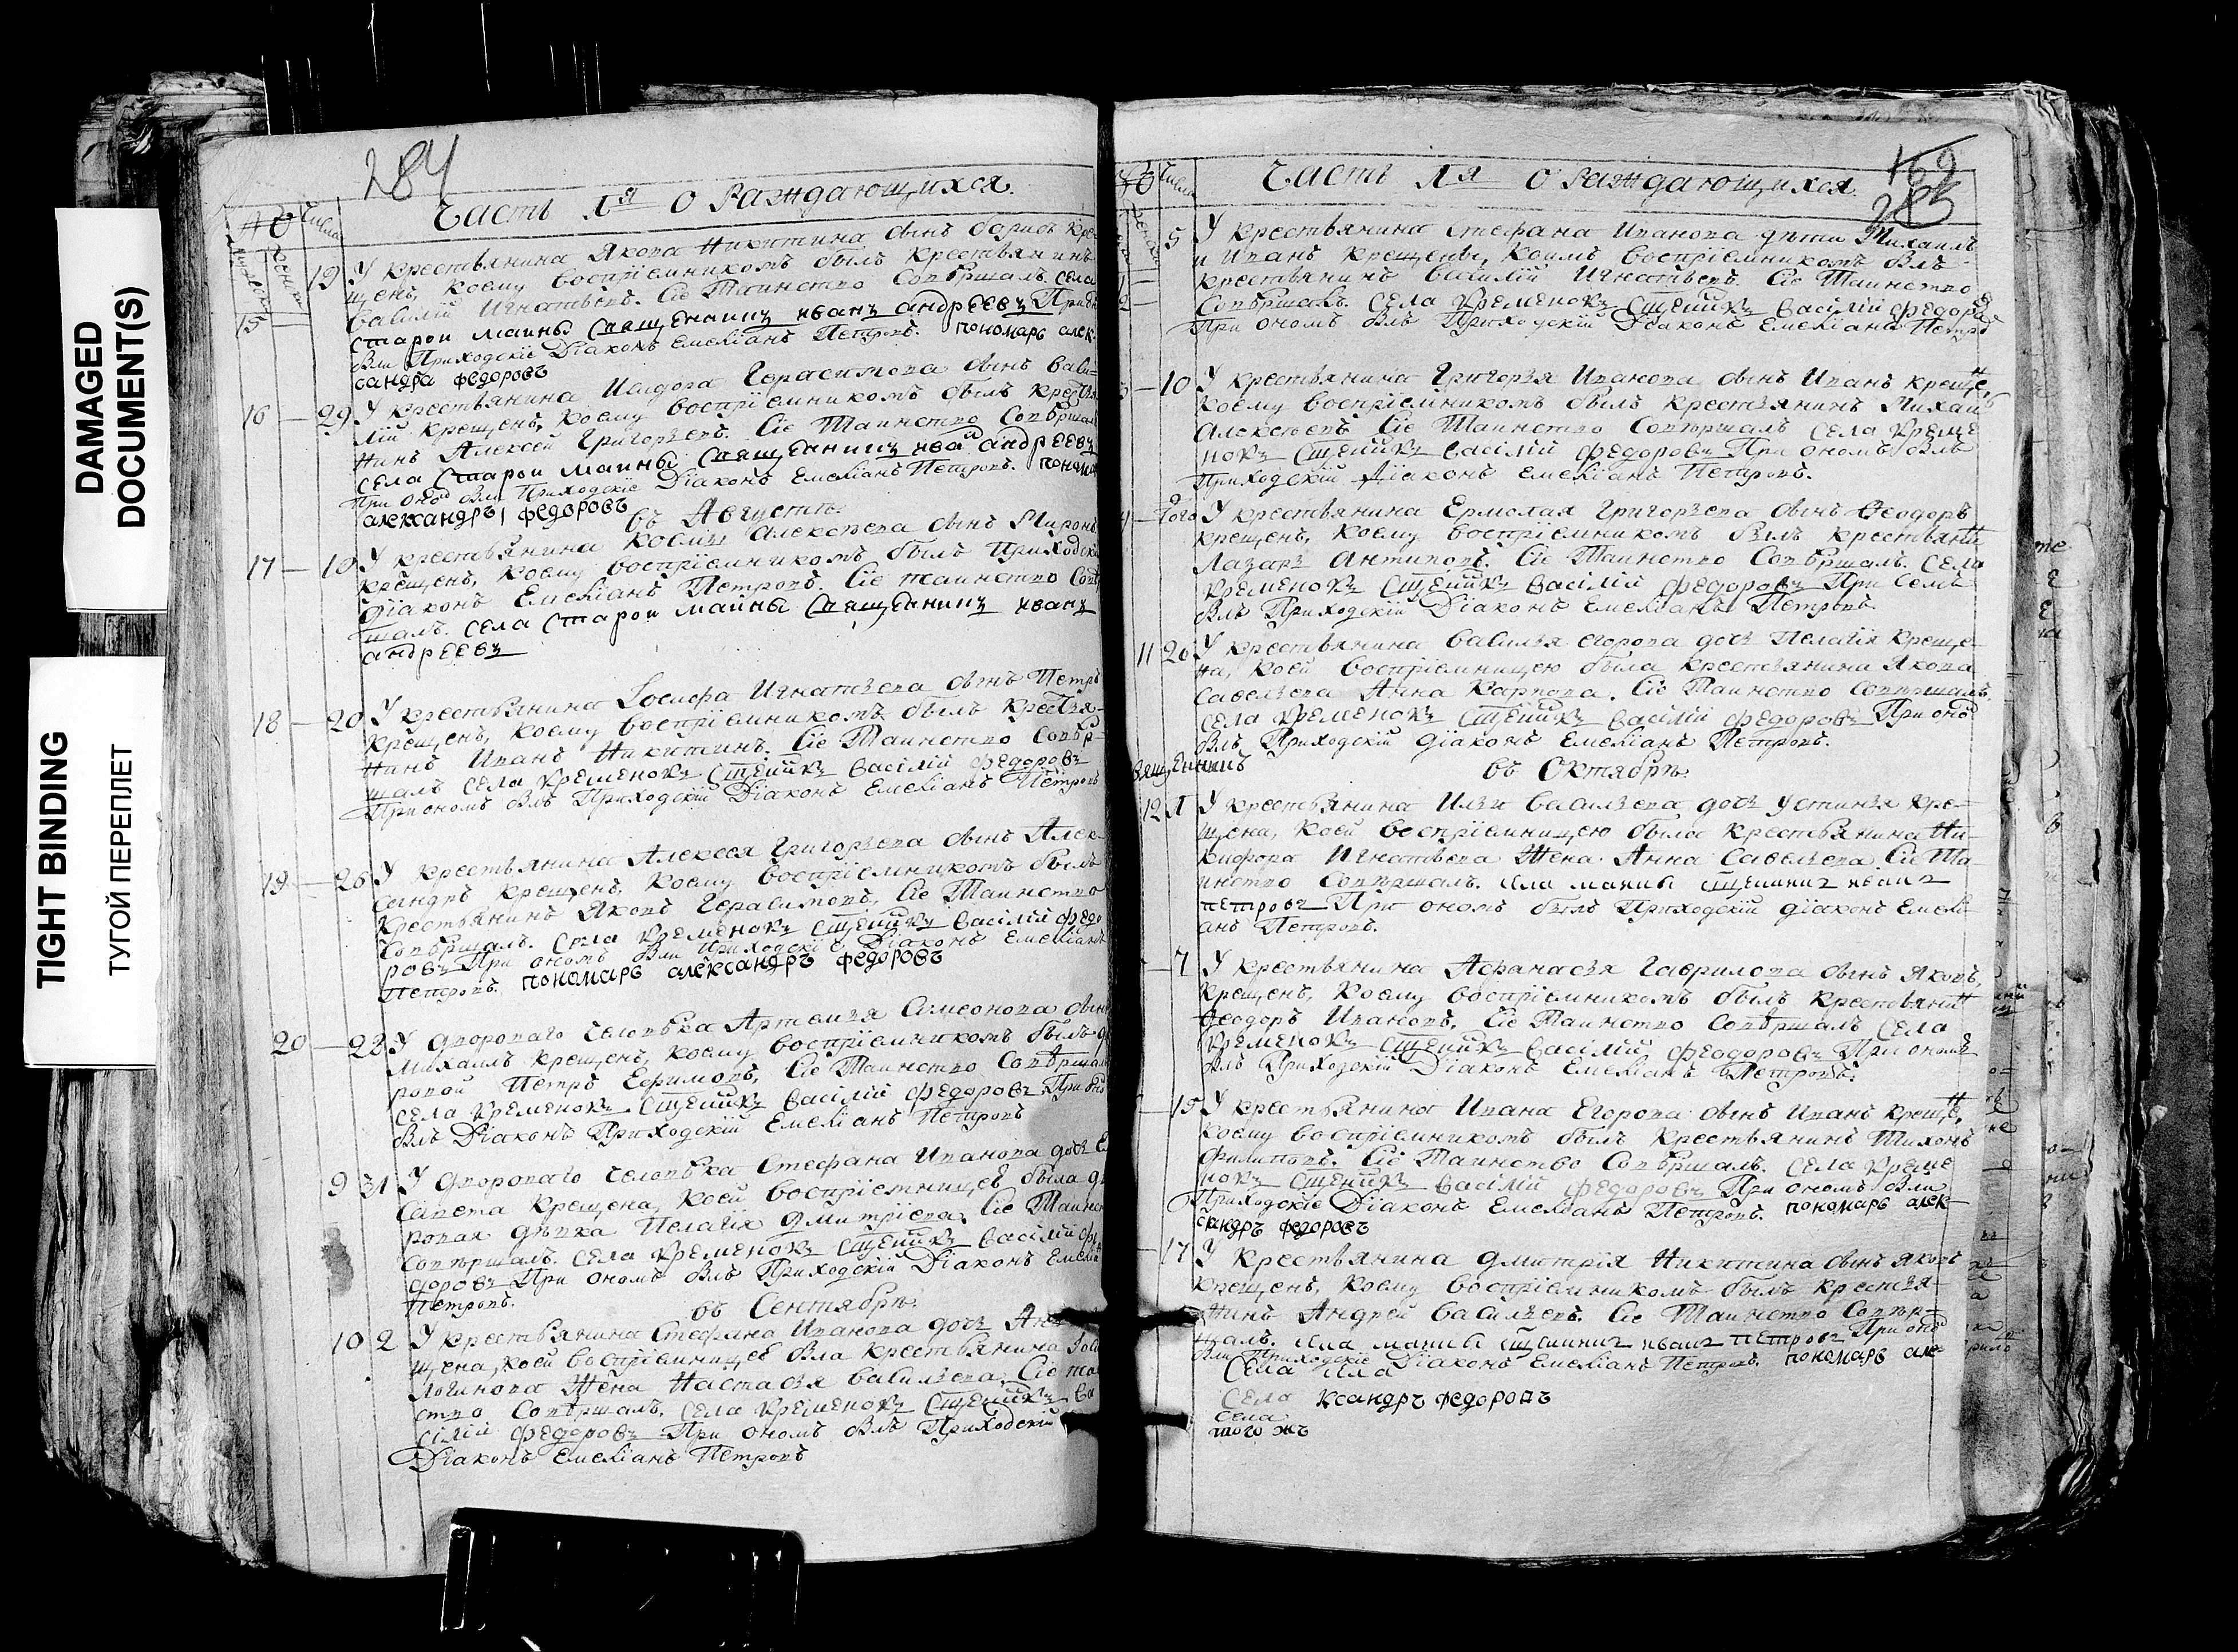 DAMAGED
DOCUMENT(S)
TIGHT BINDING
ТУГОЙ ПЕРЕПЛЕТ
284
Часть 1я о раждающихся
19 У крестьянина Якова Никитина сынъ Борисъ кре-
щенъ, коему воспріемникомъ былъ крестьянинъ
15 Василій Игнатьевъ. Сіе таинство совѣршалъ села
старои маины священникъ иванъ андреевъ
были Приходскіе Діаконъ Емеліанъ Петровъ. пономарь алек-
сандра федоровъ
16 29 У крестьянина Исидора Герасимова сынъ Васи-
лій крещенъ, коему воспріемникомъ былъ кресть
нинъ Алексей Григорьевъ. Сіе таинство совѣршал
села старои маины священникъ иван андреевъ
При оном были Приходскіе Діаконъ Емеліанъ Петровъ. понома
александръ федоровъ
въ Августѣ
17 10 У крестьянина Козмы Алексѣева сынъ Миронъ
крещенъ, коему воспріемникомъ былъ Приходски
Діаконъ Емеліанъ Петровъ. Сіе таинство совѣ
шалъ. села старои маины священникъ иванъ
андреевъ
18 20 У крестьянина Іосифа Игнатьева сынъ Петръ
крещенъ, коему воспріемникомъ былъ крестья-
нинъ Иванъ Никитинъ. Сіе таинство совѣр-
шалъ села кременокъ сщенникъ василій федоровъ
При ономъ былъ Приходскій Діаконъ Емеліанъ Петровъ
19 26 У крестьянина Алексея Григорьева сынъ Алек-
сандръ крещенъ, коему воспріемникомъ былъ
крестьянинъ Яковъ Герасимовъ, Сіе таинство
совѣршалъ. села кременокъ сщенникъ василій федо
ровъ При ономъ были Приходскіе Діаконъ Емеліанъ
Петровъ. пономарь александръ федоровъ
20 28 У двороваго человѣка Артемья Симеонова сынъ
Михаилъ крещенъ, коему воспріемникомъ былъ д
ровой Петръ Ефимовъ, Сіе таинство совѣршал
села кременокъ сщенникъ василій федоровъ При
былъ Діаконъ Приходскій Емеліанъ Петровъ
9 31 У двороваго человѣка Стефана Иванова дочь Е
савета крещена, коей воспріемницею была д
ровая дѣвка Пелагія Дмитріева, Сіе таин
совѣршалъ. села кременокъ сщенникъ василій фе
доровъ При ономъ былъ Приходскій Діаконъ Емеліан
Петровъ.
въ Сентябрѣ
10 2 У крестьянина Стефана Иванова дочь Ан
щена, коей воспріемницею была крестьянина
Логинова жена Настасья Васильева, Сіе таи
ство совѣршалъ. села кременокъ сщенникъ ва
сілій федоровъ При ономъ былъ Приходскій
Діаконъ Емеліанъ Петровъ
169
285
Часть 1я о раждающихся
5 У крестьянина Стефана Иванова дѣти Михаилъ
и Иванъ крещены, коимъ воспріемникомъ былъ
крестьянинъ Василій Игнатьевъ. Сіе таинство
совѣршалъ. села кременокъ сщенникъ василій федоровъ
При ономъ былъ Приходскій Діаконъ Емеліанъ Петровъ
10 У крестьянина Григорья Иванова сынъ Иванъ креще,
коему воспріемникомъ былъ крестьянинъ Михаи
Алексѣевъ Сіе таинство совѣршалъ села креме
нокъ сщенникъ василій федоровъ При ономъ былъ
Приходскій Діаконъ Емеліанъ Петровъ.
того У крестьянина Ермолая Григорьева сынъ Ѳеодоръ
крещенъ, коему воспріемникомъ былъ крестьянин
Лазарь Антиповъ. Сіе таинство совѣршалъ. села
кременокъ сщенникъ василій федоровъ При семъ
былъ Приходскій Діаконъ Емеліанъ Петровъ.
11 26 У крестьянина Василья Егорова дочь Пелагія креще-
на, коей воспріемницею была крестьянина Якова
Савельева Анна Карпова. Сіе таинство совѣршалъ
села кременокъ сщенникъ василій федоровъ При оном
былъ Приходскій діаконъ Емеліанъ Петровъ.
въ Октябрѣ
12 1 У крестьянина Ильи Васильева дочь Устинья кре-
щена, коей воспріемницею была крестьянина Ни-
кифора Игнатьева жена Анна Савельева Сіе та-
инство совѣршалъ. села маины сщенникъ иванъ
петровъ При ономъ былъ Приходскій діаконъ Емелі-
анъ Петровъ.
7 У крестьянина Афанасья Гаврилова сынъ Яковъ
крещенъ, коему воспріемникомъ былъ крестьянин
Ѳеодоръ Ивановъ, Сіе таинство совѣршалъ села
кременокъ сщенникъ василій феодоровъ При ономъ
былъ Приходскій Діаконъ Емеліанъ Петровъ.
15 У крестьянина Ивана Егорова сынъ Иванъ креще,
коему воспріемникомъ былъ крестьянинъ Тихонъ
Филиповъ. Сіе таинство совѣршалъ. села креме
нокъ сщенникъ василій федоровъ При ономъ были
Приходскіе Діаконъ Емеліанъ Петровъ. пономарь алек-
сандръ федоровъ
17 У крестьянина Дмитрія Никитина сынъ Яковъ
крещенъ, коему воспріемникомъ былъ крестья-
нинъ Андрей Васильевъ. Сіе таинство совѣр-
шалъ. села маины сщенникъ иванъ петровъ При оном
были Приходскіе Діаконъ Емеліанъ Петровъ. пономарь але
ксандръ федоровъ
Села
села
того жъ